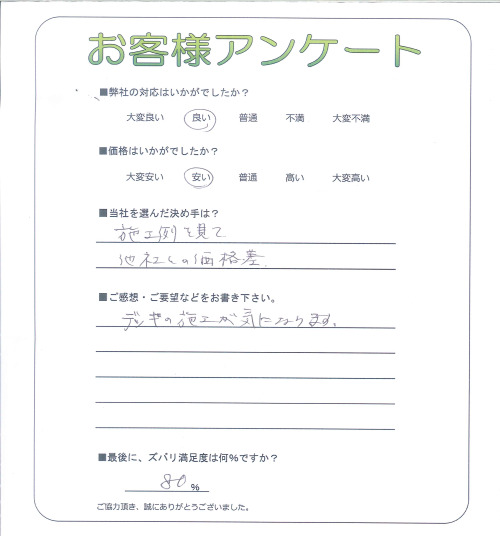 お客様アンケート
■弊社の対応はいかがでしたか？
大変良い 良い 普通 不満 大変不満
■価格はいかがでしたか？
大変安い 安い 普通 高い 大変高い
■当社を選んだ決め手は？
施工例を見て
他社との価格差
■ご感想・ご要望などをお書き下さい。
デッキの施工が気になります。
■最後に、ズバリ満足度は何％ですか？
80％
ご協力頂き、誠にありがとうございました。